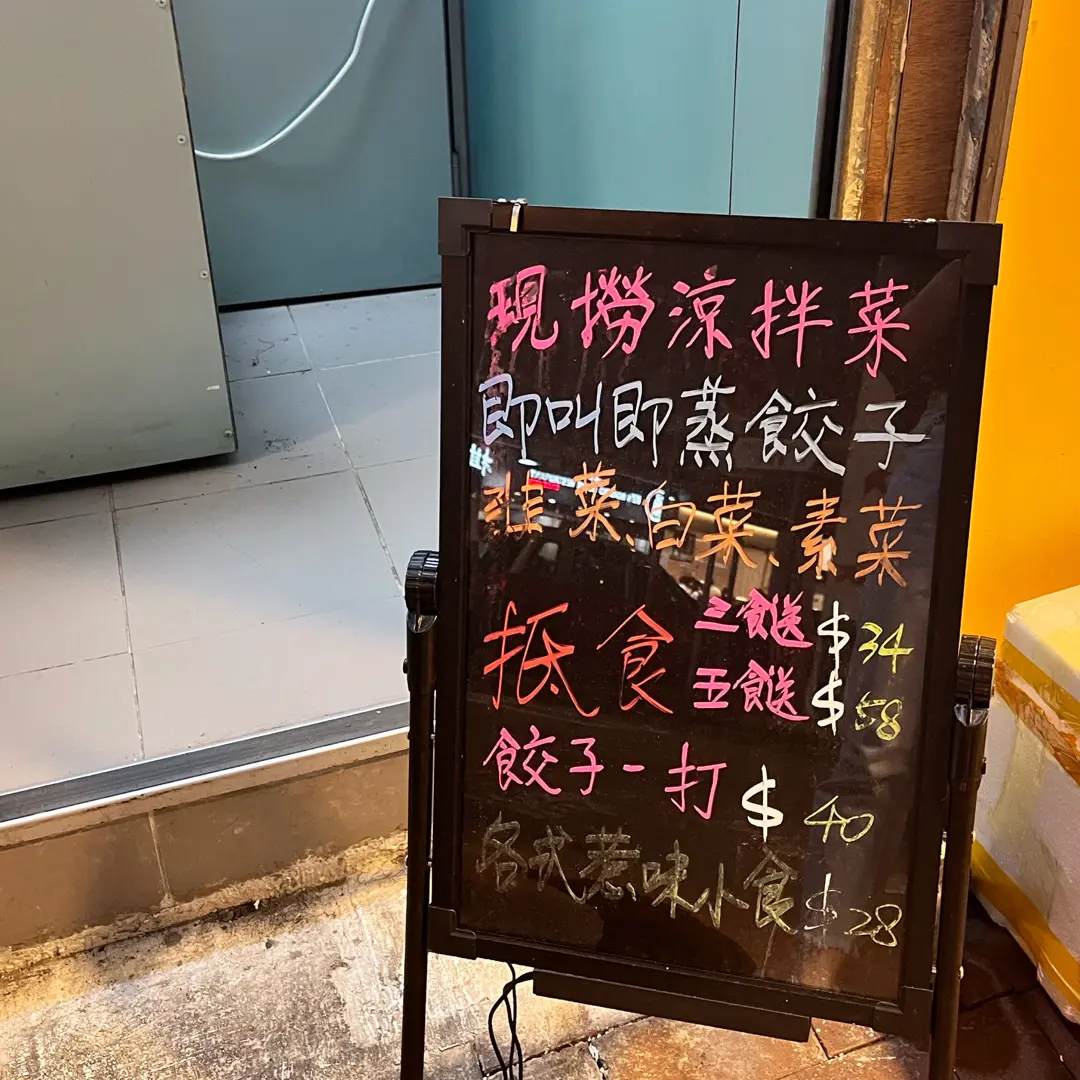 現撈涼拌菜
即叫即蒸餃子
韭菜、白菜、素菜
抵食 三餸 $34
五餸 $58
餃子一打 $40
各式惹味小食 $28